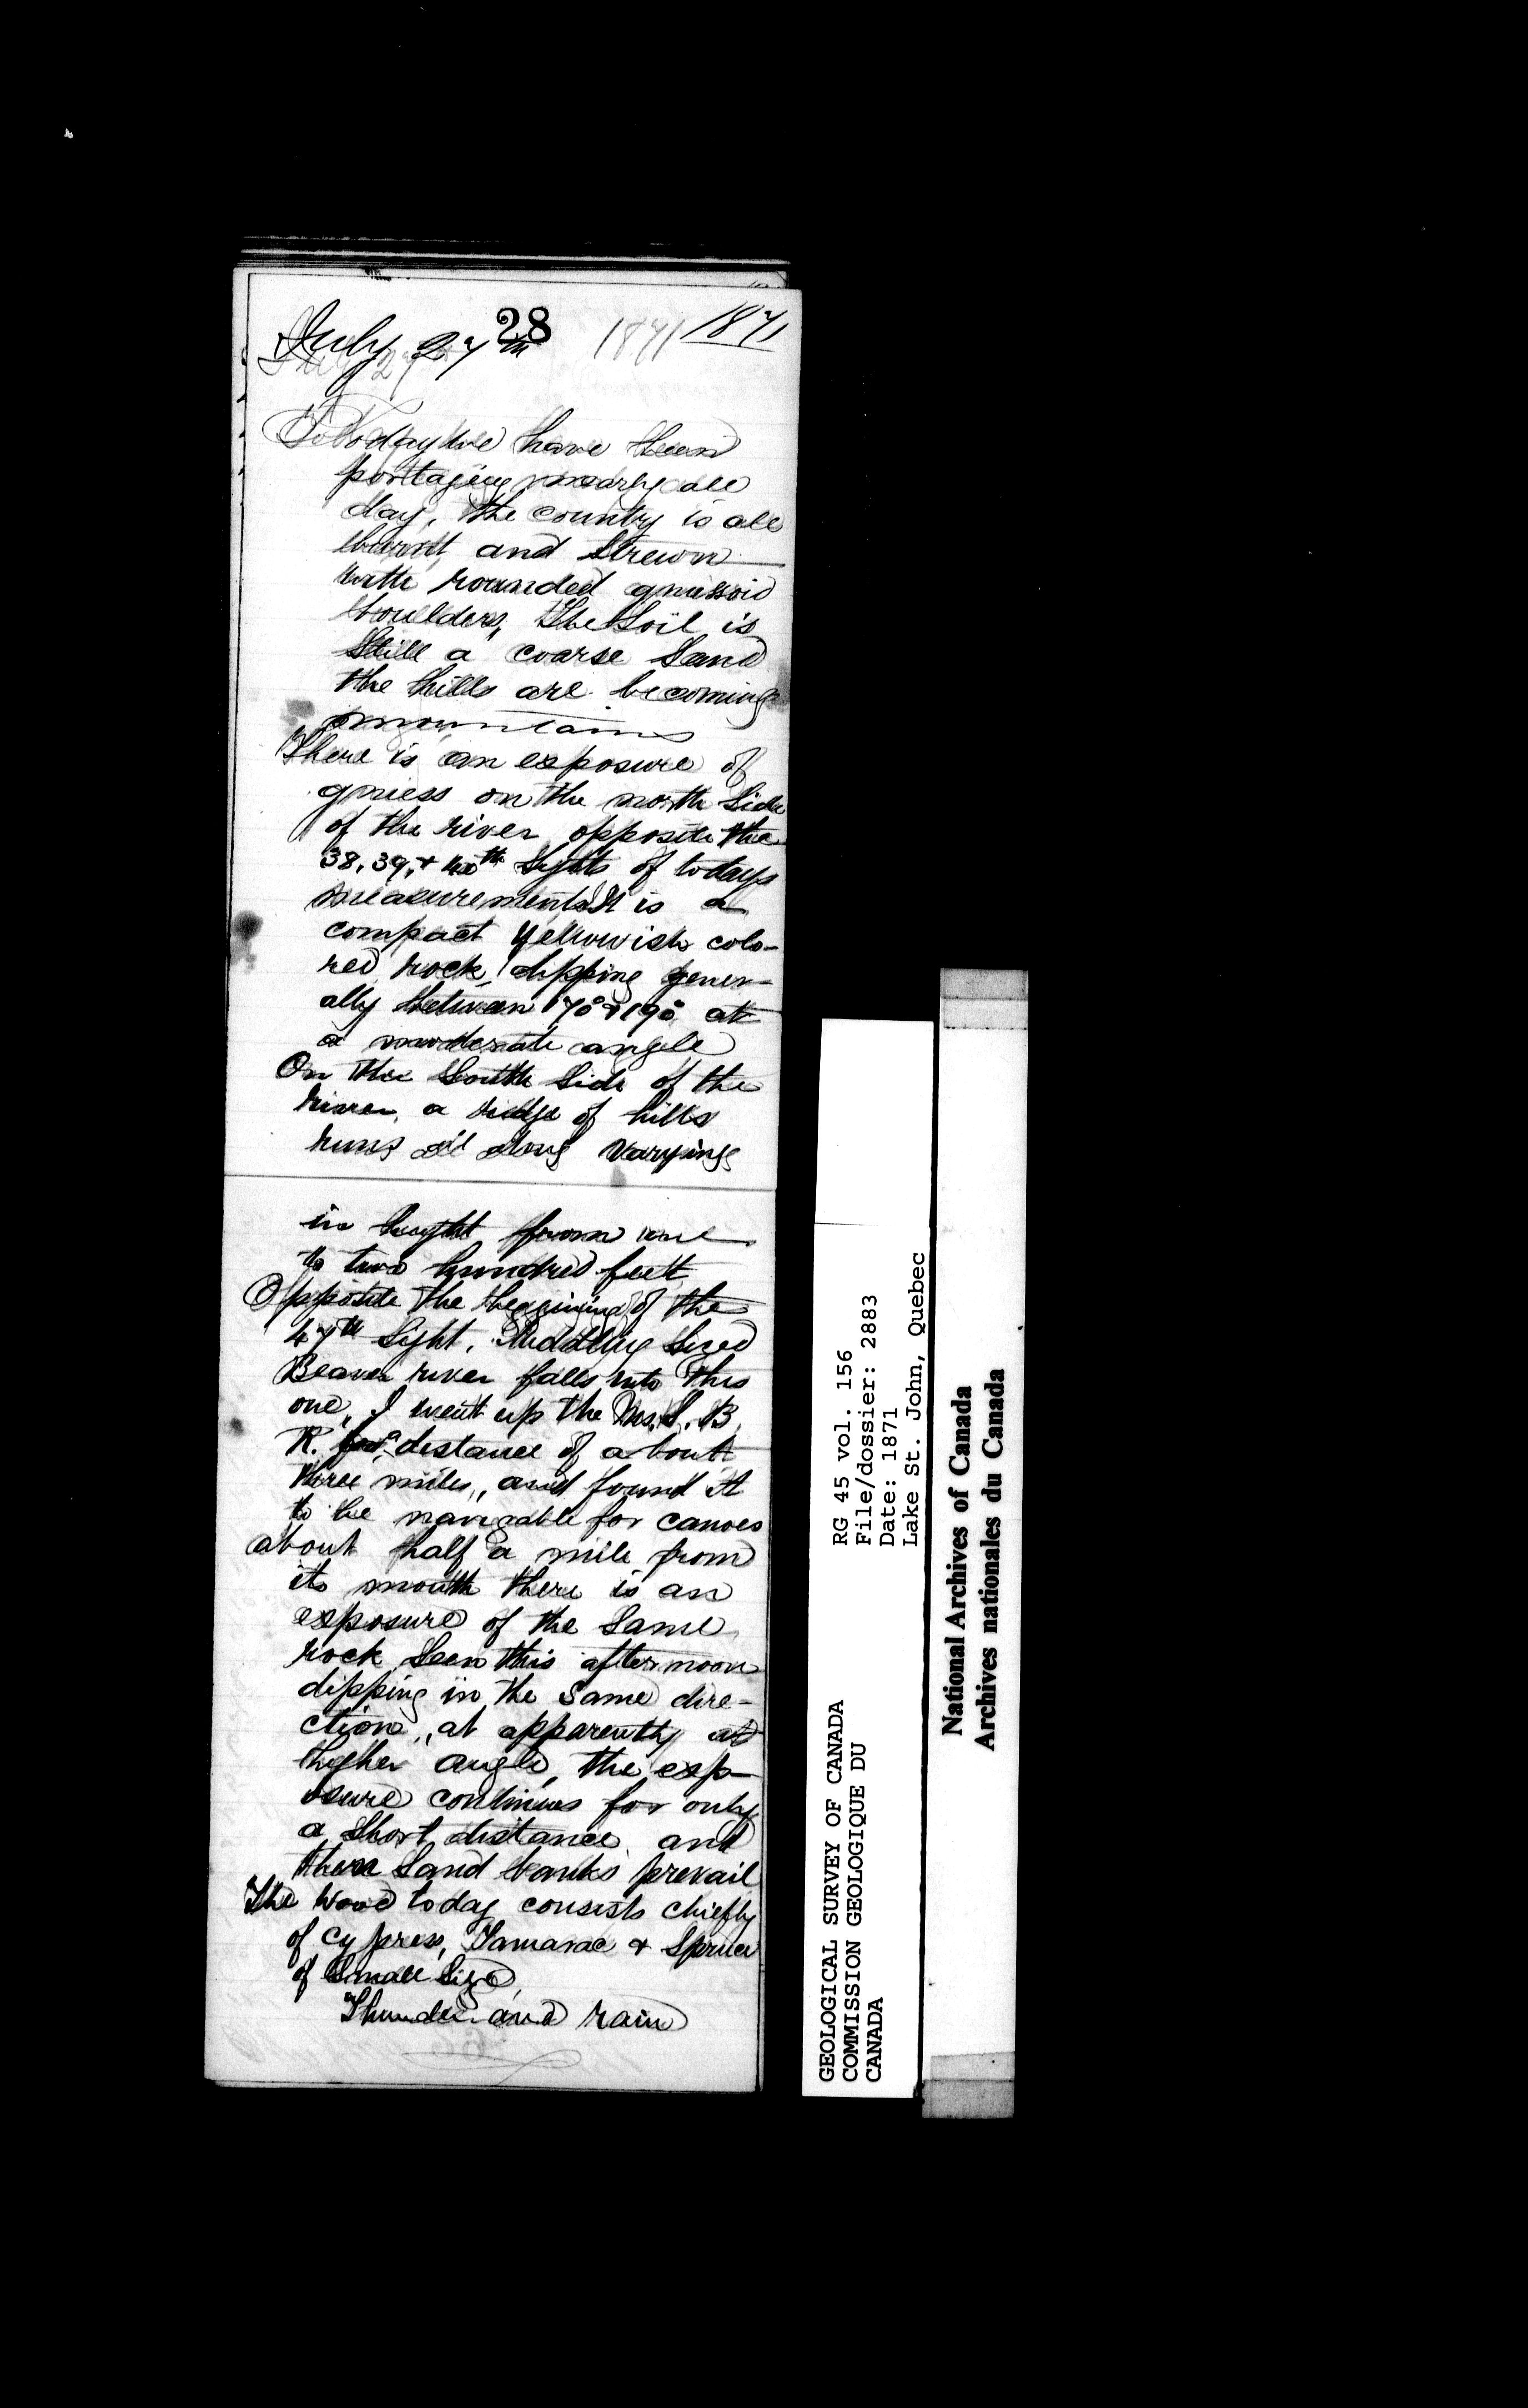 28
July 27th 1871 1871
Today we have been
portaging nearly all
day, the country is all
burnt, and strewn
with rounded gniessoid
boulders, The Soil is
Still a coarse Sand
the hills are becoming
mountains
There is an exposure of
gniess on the north Side
of the river opposite the
38, 39, + 40th Sights of todays
measurements It is a
compact yellowish colo-
red rock, dipping gener-
ally between 170° + 190° at
a moderate angle
On the South Side of the
river, a ridge of hills
runs all along varying
in hight from one
to two hundred feet
Opposite the begining of the
47th Sight, Middling Sized
Beaver river falls into this
one, I went up the M. S. B.
R. for a distance of about
three miles, and found it
to be navigable for canoes
about half a mile from
its mouth there is an
exposure of the Same
rock Seen this afternoon
dipping in the Same dire-
ction, at apparently a
higher angle, the exp-
osure continues for only
a Short distance and
then Sand banks prevail
The Wood today consists chiefly
of Cypress, Tamarac + Spruce
of Small Size
Thunder and rain
GEOLOGICAL SURVEY OF CANADA
COMMISSION GEOLOGIQUE DU
CANADA
RG 45 vol. 156
File/dossier: 2883
Date: 1871
Lake St. John, Quebec
National Archives of Canada
Archives nationales du Canada